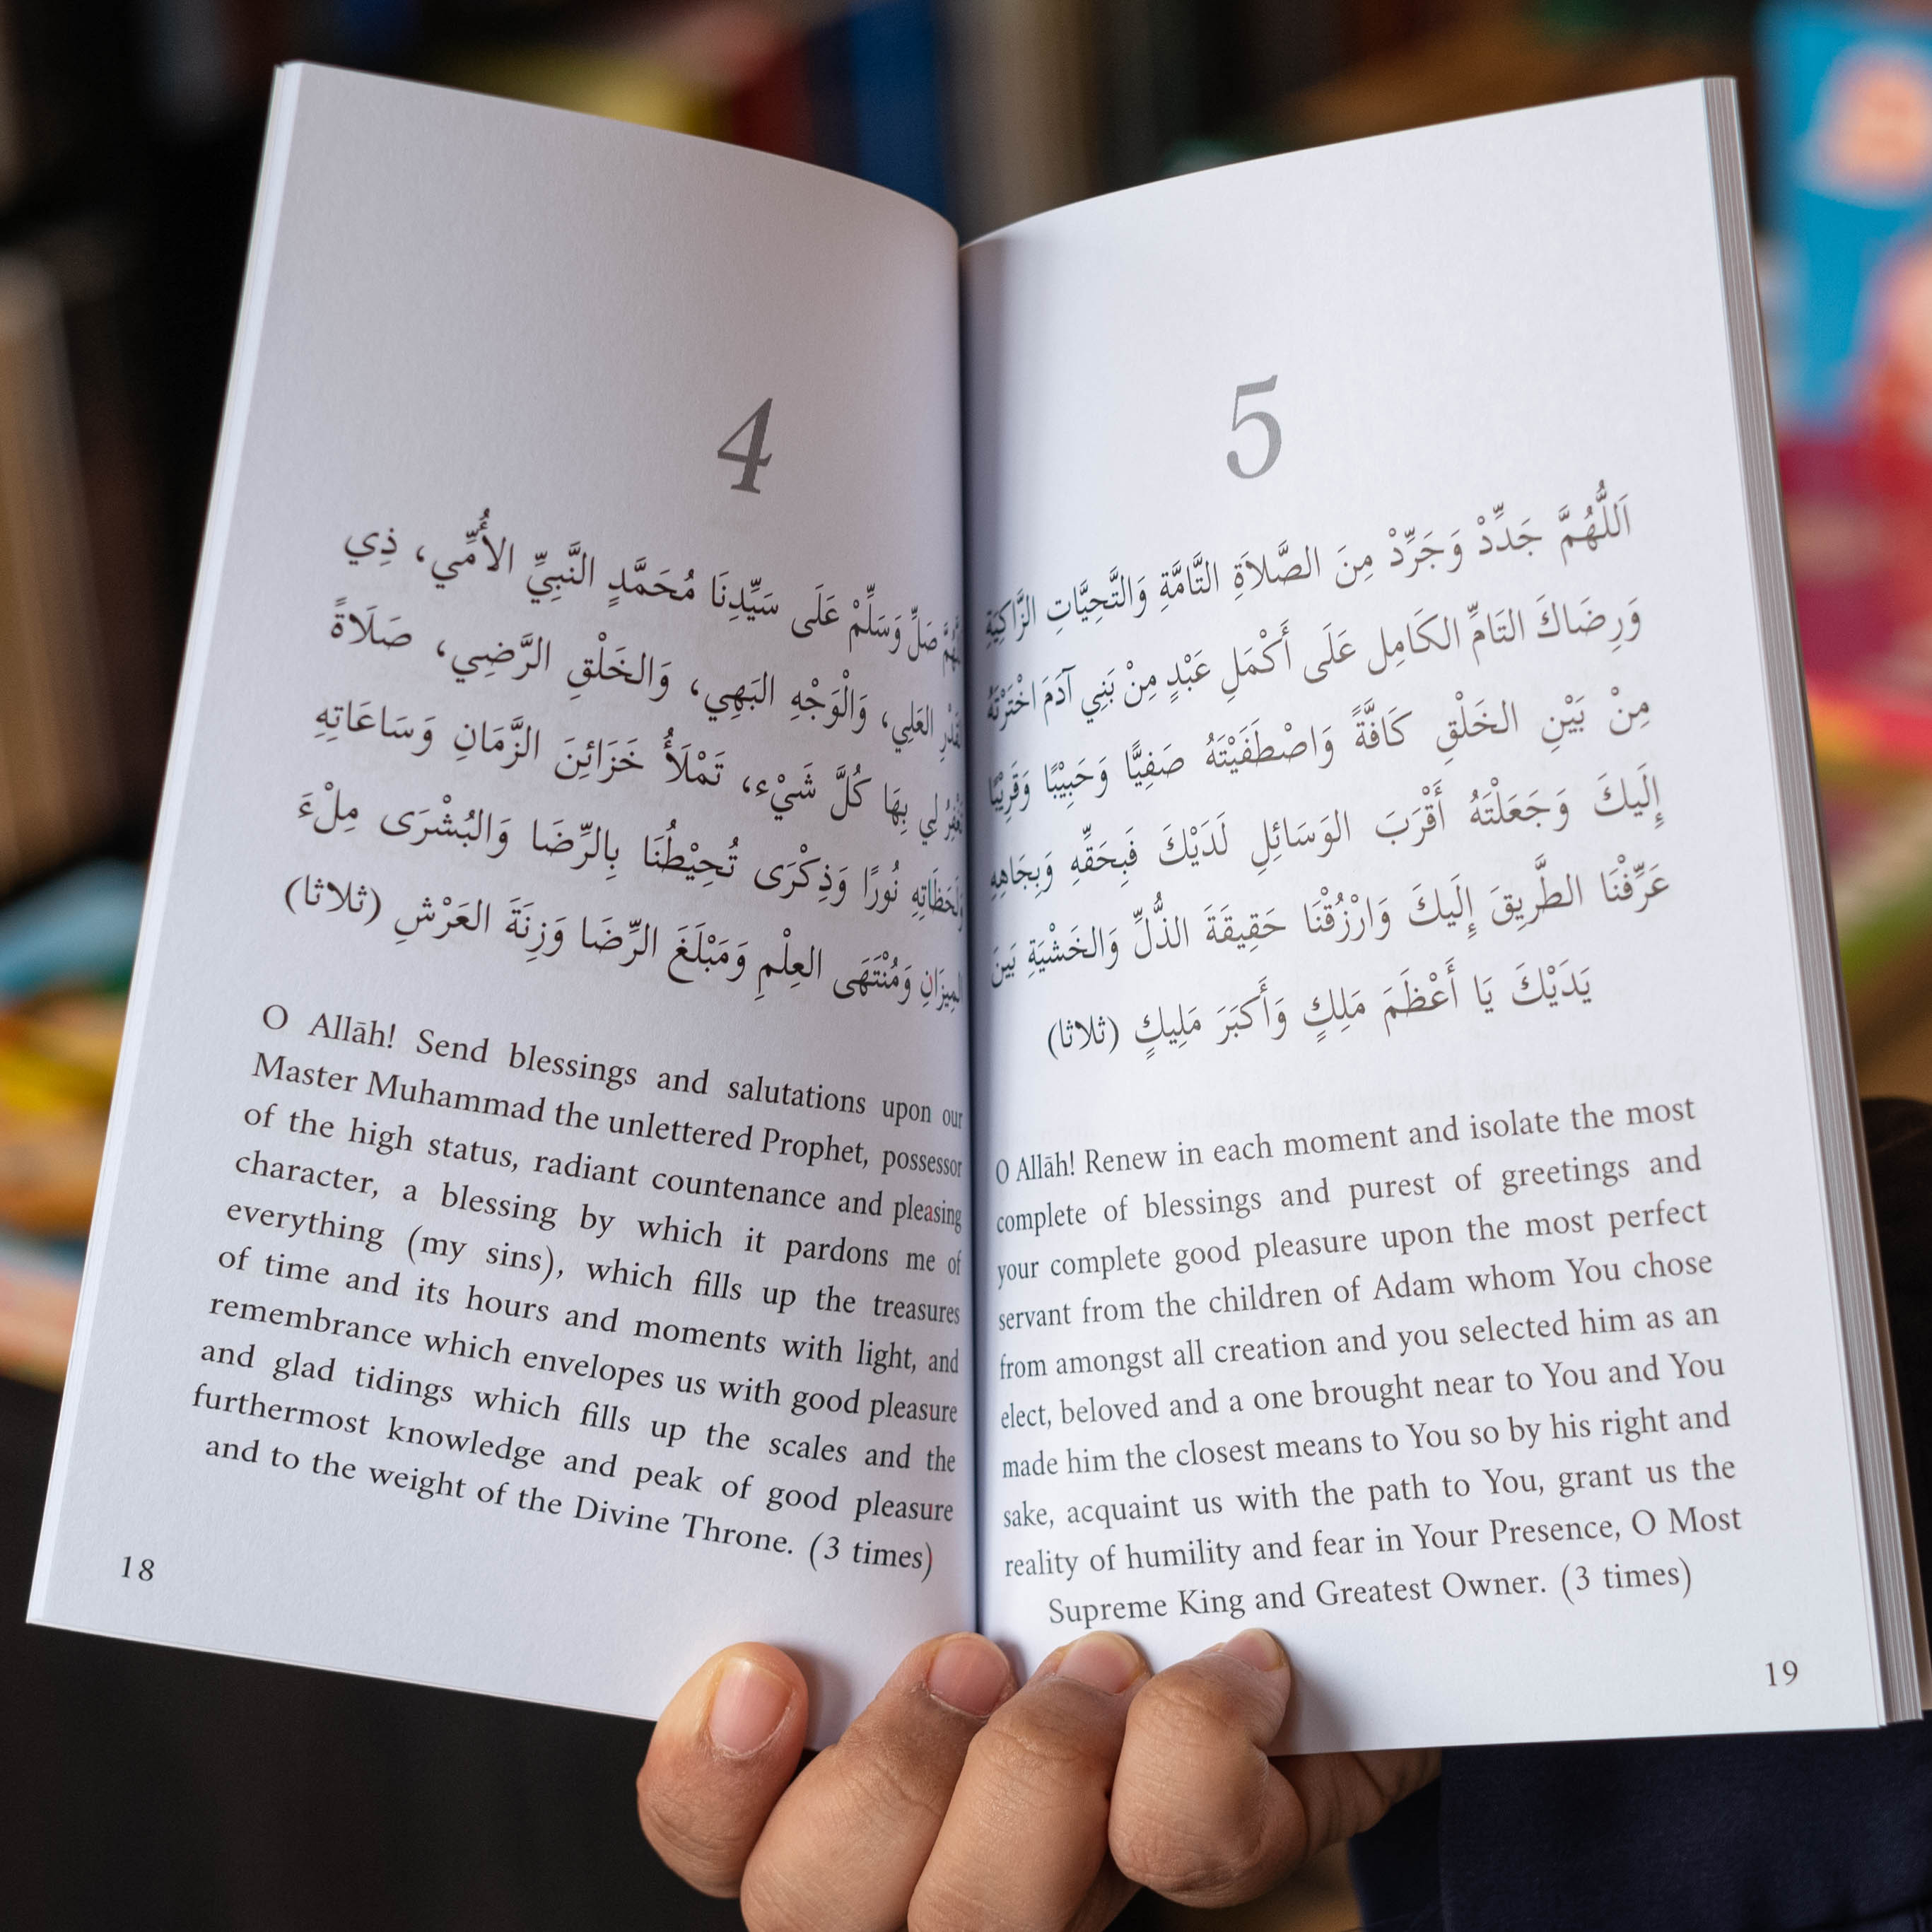 4
صَلِّ وَسَلِّمْ عَلَى سَيِّدِنَا مُحَمَّدٍ النَّبِيِّ الأُمِّي، ذِي
العَلِي، وَالْوَجْهِ البَهِي، وَالخَلْقِ الرَّضِي، صَلَاةً
لِي بِهَا كُلَّ شَيْء، تَمْلَأُ خَزَائِنَ الزَّمَانِ وَسَاعَاتِهِ
نُورًا وَذِكْرَى تُحِيْطُنَا بِالرِّضَا وَالبُشْرَى مِلْءَ
المِيزَانِ وَمُنْتَهَى العِلْمِ وَمَبْلَغَ الرِّضَا وَزِنَةَ العَرْشِ (ثلاثا)
O Allāh! Send blessings and salutations upon our
Master Muhammad the unlettered Prophet, possessor
of the high status, radiant countenance and pleasing
character, a blessing by which it pardons me of
everything (my sins), which fills up the treasures
of time and its hours and moments with light, and
remembrance which envelopes us with good pleasure
and glad tidings which fills up the scales and the
furthermost knowledge and peak of good pleasure
and to the weight of the Divine Throne. (3 times)
18
5
اَللَّهُمَّ جَدِّدْ وَجَرِّدْ مِنَ الصَّلاَةِ التَّامَّةِ وَالتَّحِيَّاتِ الزَّاكِيَةِ
وَرِضَاكَ التَامِّ الكَامِل عَلَى أَكْمَلِ عَبْدٍ مِنْ بَنِي آدَمَ اخْتَرْتَهُ
مِنْ بَيْنِ الخَلْقِ كَافَّةً وَاصْطَفَيْتَهُ صَفِيًّا وَحَبِيْبًا وَقَرِيْبًا
إِلَيكَ وَجَعَلْتَهُ أَقْرَبَ الوَسَائِلِ لَدَيْكَ فَبِحَقِّهِ وَبِجَاهِهِ
عَرِّفْنَا الطَّرِيقَ إِلَيكَ وَارْزُقْنَا حَقِيقَةَ الذُّلِّ وَالخَشْيَةِ بَينَ
يَدَيْكَ يَا أَعْظَمَ مَلِكٍ وَأَكبَرَ مَلِيكٍ (ثلاثا)
O Allāh! Renew in each moment and isolate the most
complete of blessings and purest of greetings and
your complete good pleasure upon the most perfect
servant from the children of Adam whom You chose
from amongst all creation and you selected him as an
elect, beloved and a one brought near to You and You
made him the closest means to You so by his right and
sake, acquaint us with the path to You, grant us the
reality of humility and fear in Your Presence, O Most
Supreme King and Greatest Owner. (3 times)
19